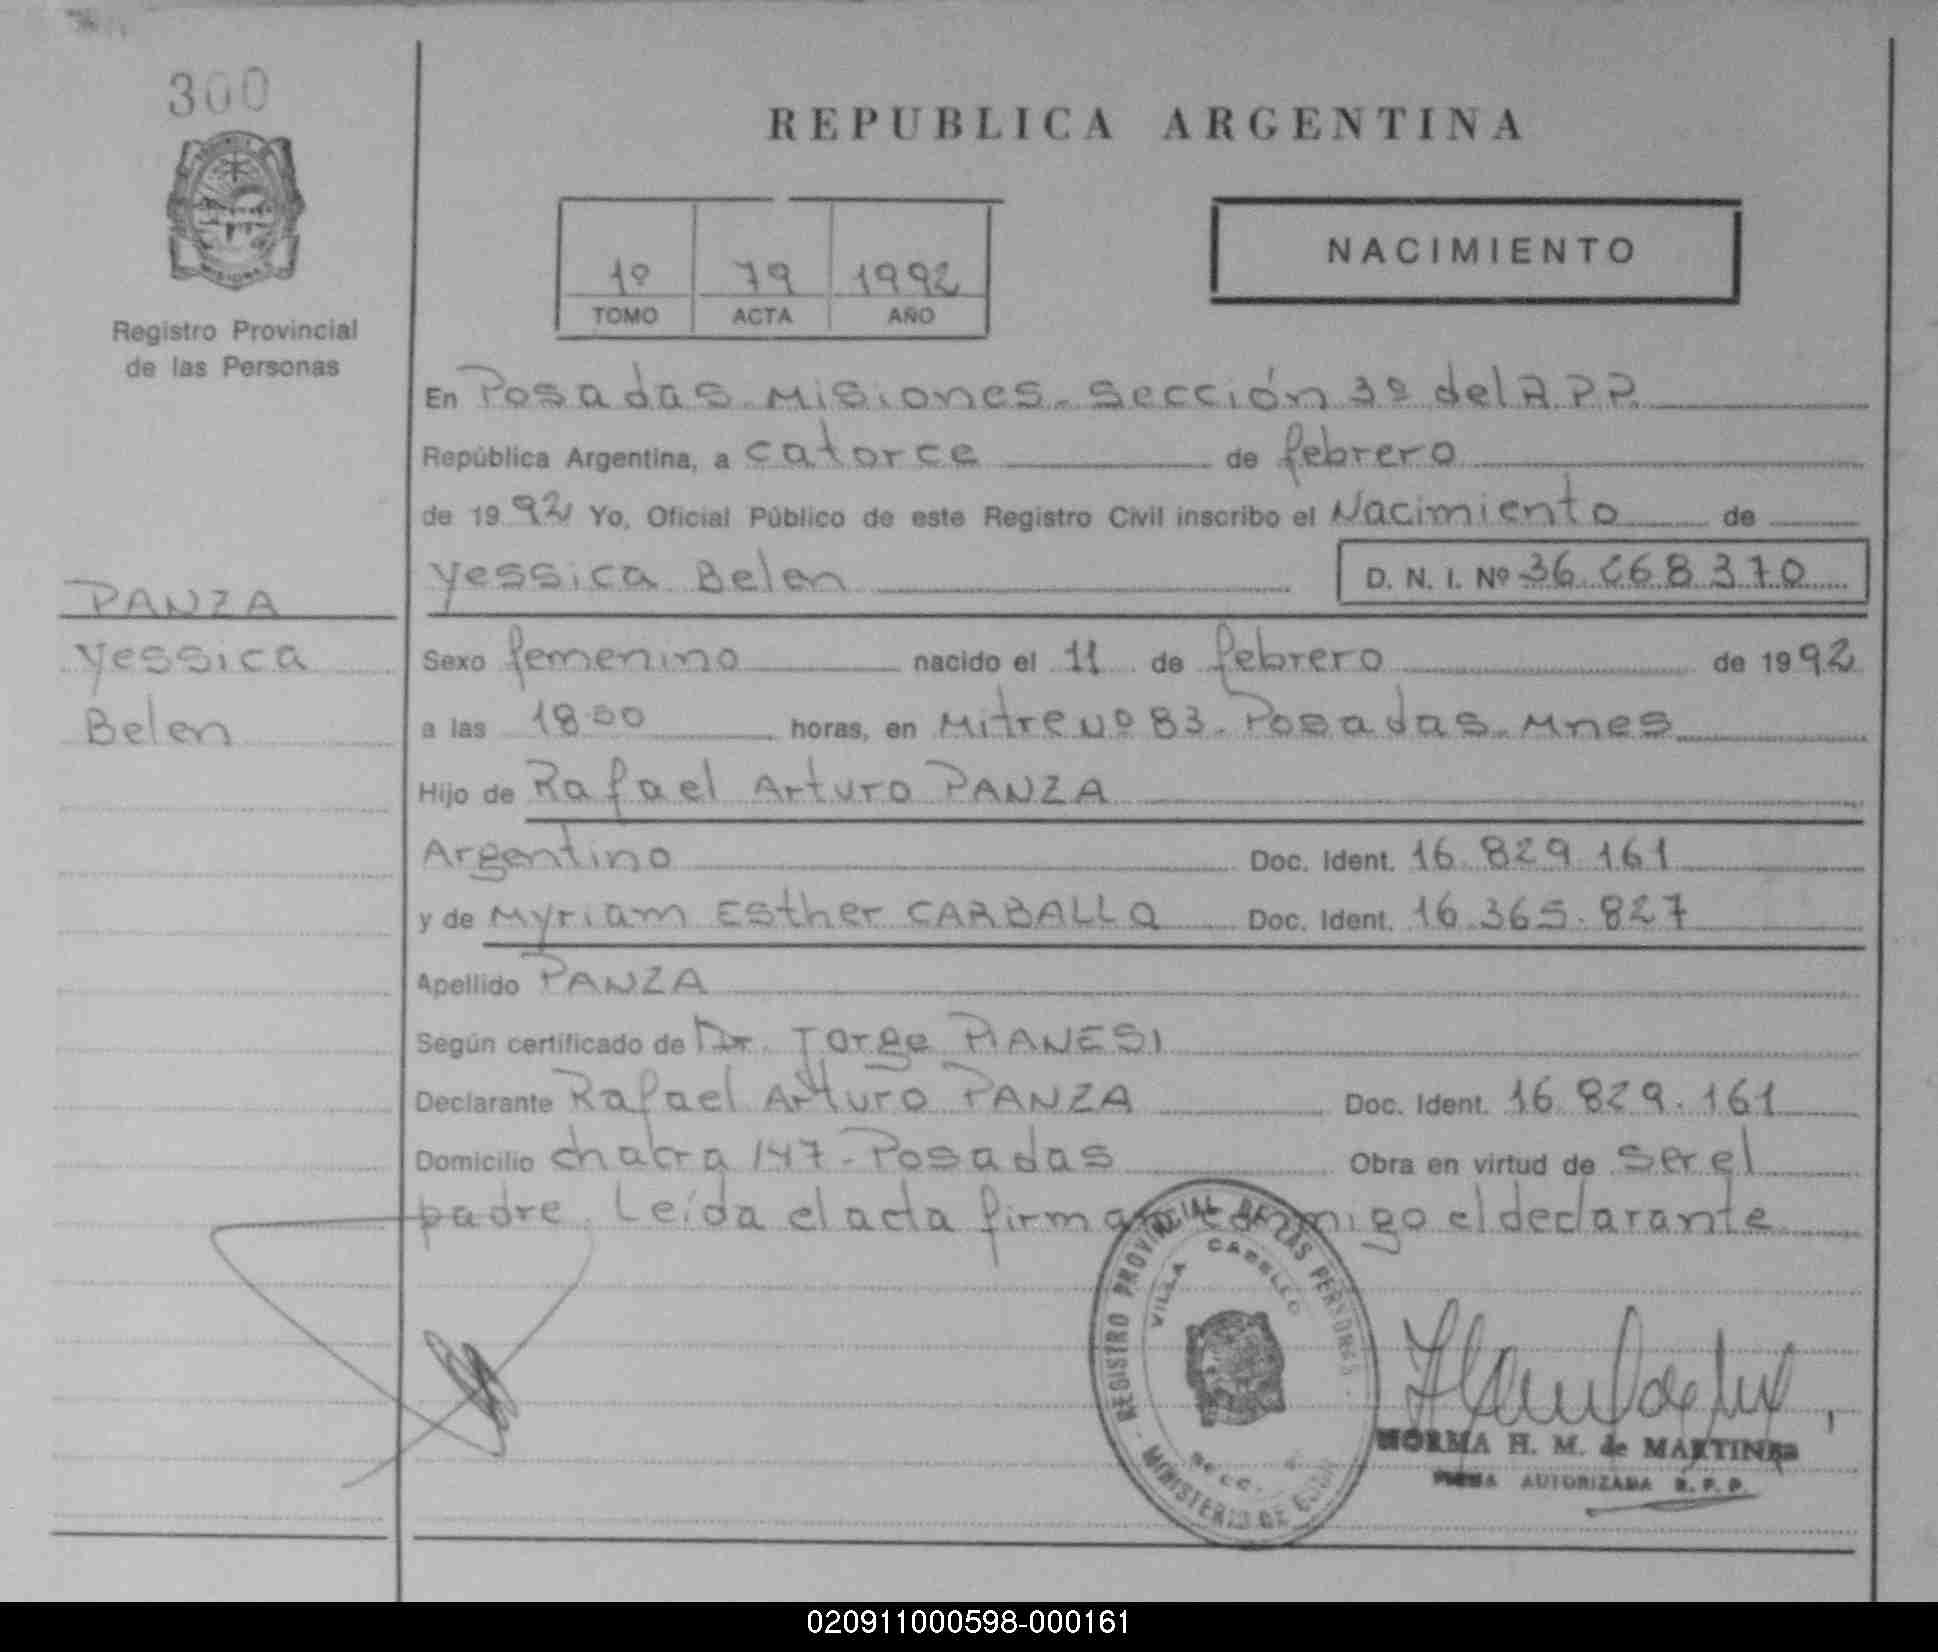 300
REPUBLICA ARGENTINA
1º 79 1992
TOMO ACTA AÑO
NACIMIENTO
Registro Provincial
de las Personas
En Posadas. Misiones. Sección 3º del R.P.P.
República Argentina, a catorce de febrero
de 1992 Yo, Oficial Público de este Registro Civil inscribo el Nacimiento de
Yessica Belen D. N. I. Nº 36.668.370
PANZA
Yessica
Belen
Sexo femenino nacido el 11 de febrero de 1992
a las 18.00 horas, en Mitre Nº 83. Posadas. Mnes
Hijo de Rafael Arturo PANZA
Argentino Doc. Ident. 16.829.161
y de Myriam Esther CARBALLO Doc. Ident. 16.365.827
Apellido PANZA
Según certificado de Dr. Jorge PIANESI
Declarante Rafael Arturo PANZA Doc. Ident. 16.829.161
Domicilio chacra 147 - Posadas Obra en virtud de ser el
padre. Leída el acta firma conmigo el declarante
REGISTRO PROVINCIAL DE LAS PERSONAS
VILLA CABELLO
SECC.
MINISTERIO DE GOB
NORMA H. M. de MARTINEZ
FIRMA AUTORIZADA R. P. P.
020911000598-000161